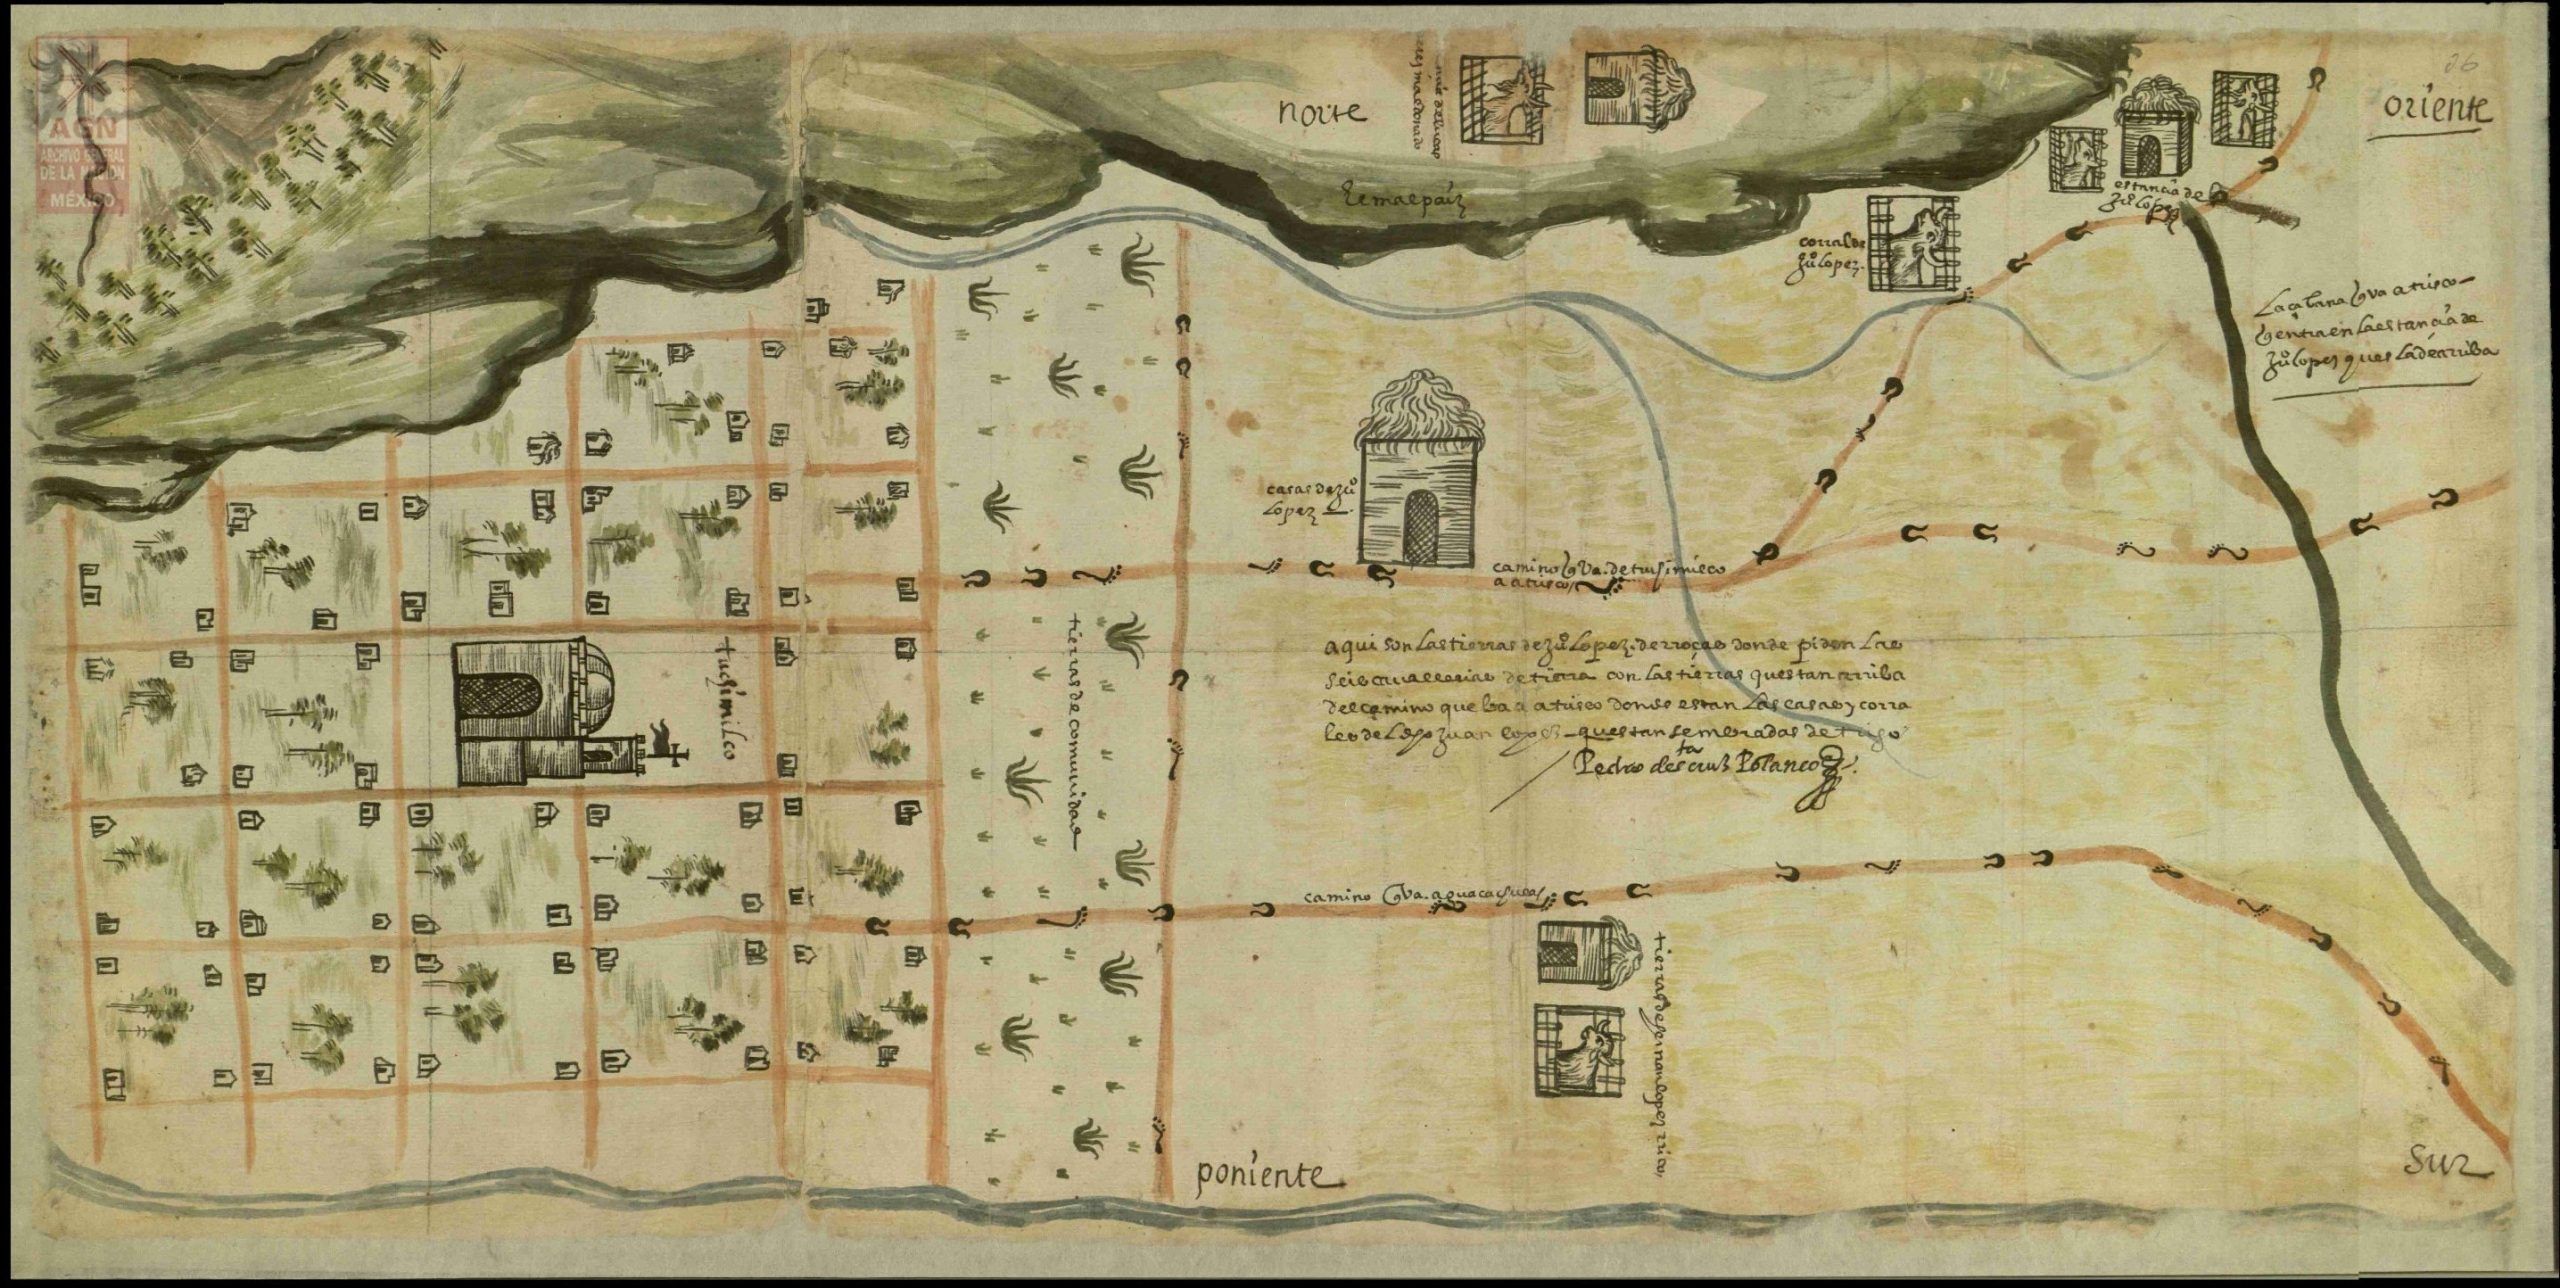 AGN
ARCHIVO GENERAL
DE LA NACIÓN
MÉXICO
norte
oriente
26
el malpaiz
estancia de
juº lopez
corral de
juº lopez
La çabana q va a trisco
q entra en la estancia de
juº lopez ques la de arriba
casas de juº
lopez
camino q va de tuchimilco
a atrisco
tuchimilco
tierras de comunidad
aqui son las tierras de juº lopez de rroças donde piden las
seis cavallerias de tierra con las tierras questan arriba
del camino que ba a atrisco donde estan las casas y corra
les del dho juan lopez questan sembradas de trigo
Pedro de sta cruz Polanco
camino q va a guacachulas
poniente
sur